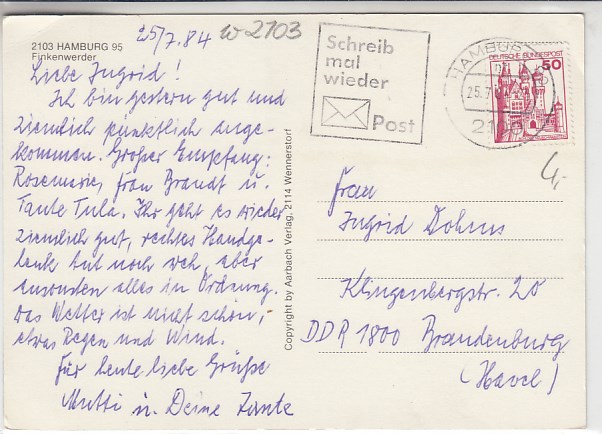 2103 HAMBURG 95
Finkenwerder
25/7.84
W 2103
Liebe Ingrid!
Ich bin gestern gut und
ziemlich pünktlich ange-
kommen. Großer Empfang:
Rosemarie, Frau Brandt u.
Tante Tula. Ihr geht es wieder
ziemlich gut, rechtes Handge-
lenk tut noch weh, aber
ansonsten alles in Ordnung.
Das Wetter ist nicht schön,
etwas Regen und Wind.
Für heute liebe Grüße
Mutti u. Deine Tante
Copyright by Aarbach Verlag, 2114 Wennerstorf
Schreib
mal
wieder
Post
HAMBURG
25.7.84
DEUTSCHE BUNDESPOST
50
4,-
Frau
Ingrid Dohms
Klingenbergstr. 20
DDR 1800 Brandenburg
(Havel)